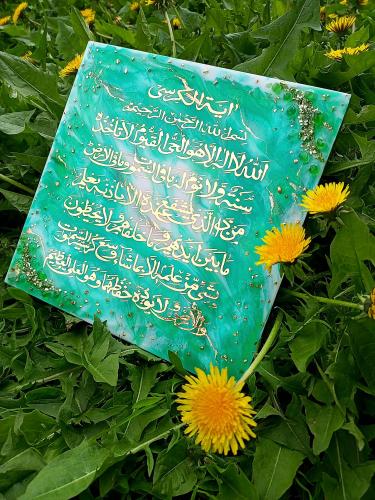 اية الكرسي
بسم الله الرحمن الرحيم
الله لا اله الا هو الحي القيوم لا تأخذه
سنة ولا نوم له ما في السموت وما في الارض
من ذا الذي يشفع عنده الا باذنه يعلم
ما بين ايديهم وما خلفهم ولا يحيطون
بشئ من علمه الا بما شاء وسع كرسيه السموت
والارض ولا يؤده حفظهما وهو العلي العظيم